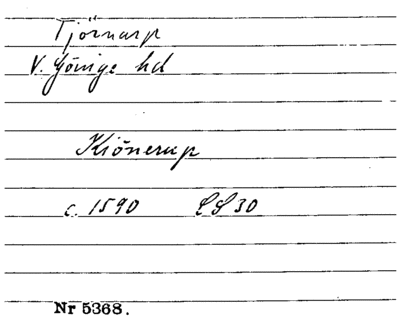 Tjörnarp
V. Göinge hd
Kiönerup
c. 1590 LS 30
Nr 5368.